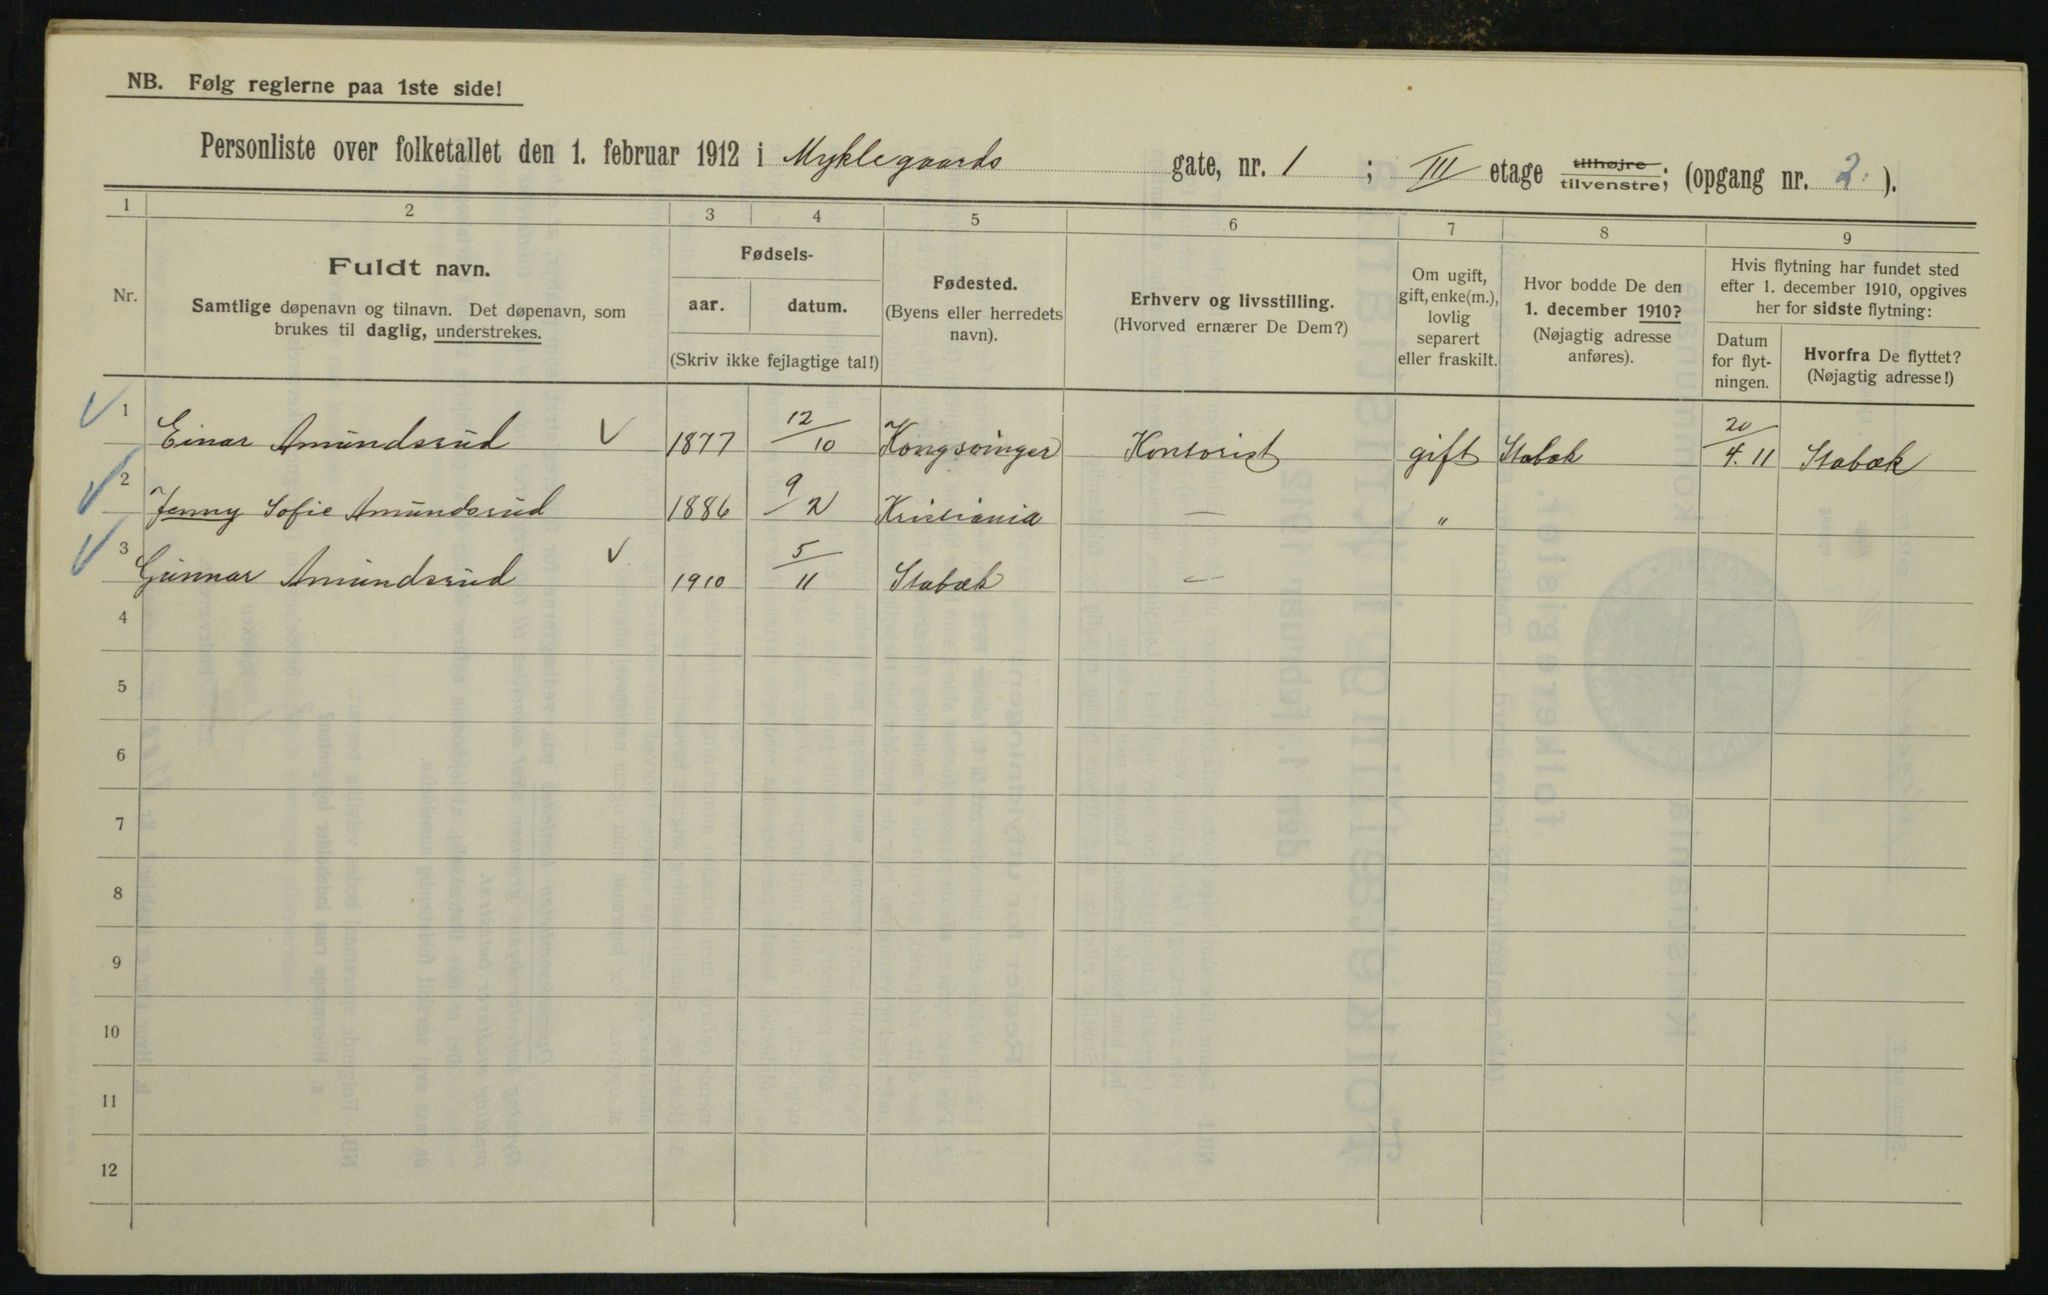 NB. Følg reglerne paa 1ste side!
Personliste over folketallet den 1. februar 1912 i Myklegaards gate, nr. 1 ; III etage tilhøjre tilvenstre; (opgang nr. 2).
1 2 3 4 5 6 7 8 9
Nr.
Fuldt navn.
Samtlige døpenavn og tilnavn. Det døpenavn, som
brukes til daglig, understrekes.
Fødsels-
aar. datum.
(Skriv ikke fejlagtige tal!)
Fødested.
(Byens eller herredets
navn).
Erhverv og livsstilling.
(Hvorved ernærer De Dem?)
Om ugift,
gift, enke(m.),
lovlig
separert
eller fraskilt.
Hvor bodde De den
1. december 1910?
(Nøjagtig adresse
anføres).
Hvis flytning har fundet sted
efter 1. december 1910, opgives
her for sidste flytning:
Datum
for flyt-
ningen.
Hvorfra De flyttet?
(Nøjagtig adresse!)
1 Einar Amundsrud 1877 12/10 Kongsvinger Kontorist gift Stabæk 20/4. 11 Stabæk
2 Jenny Sofie Amundsrud 1886 9/2 Kristiania — "
3 Gunnar Amundsrud 1910 5/11 Stabæk —
4
5
6
7
8
9
10
11
12